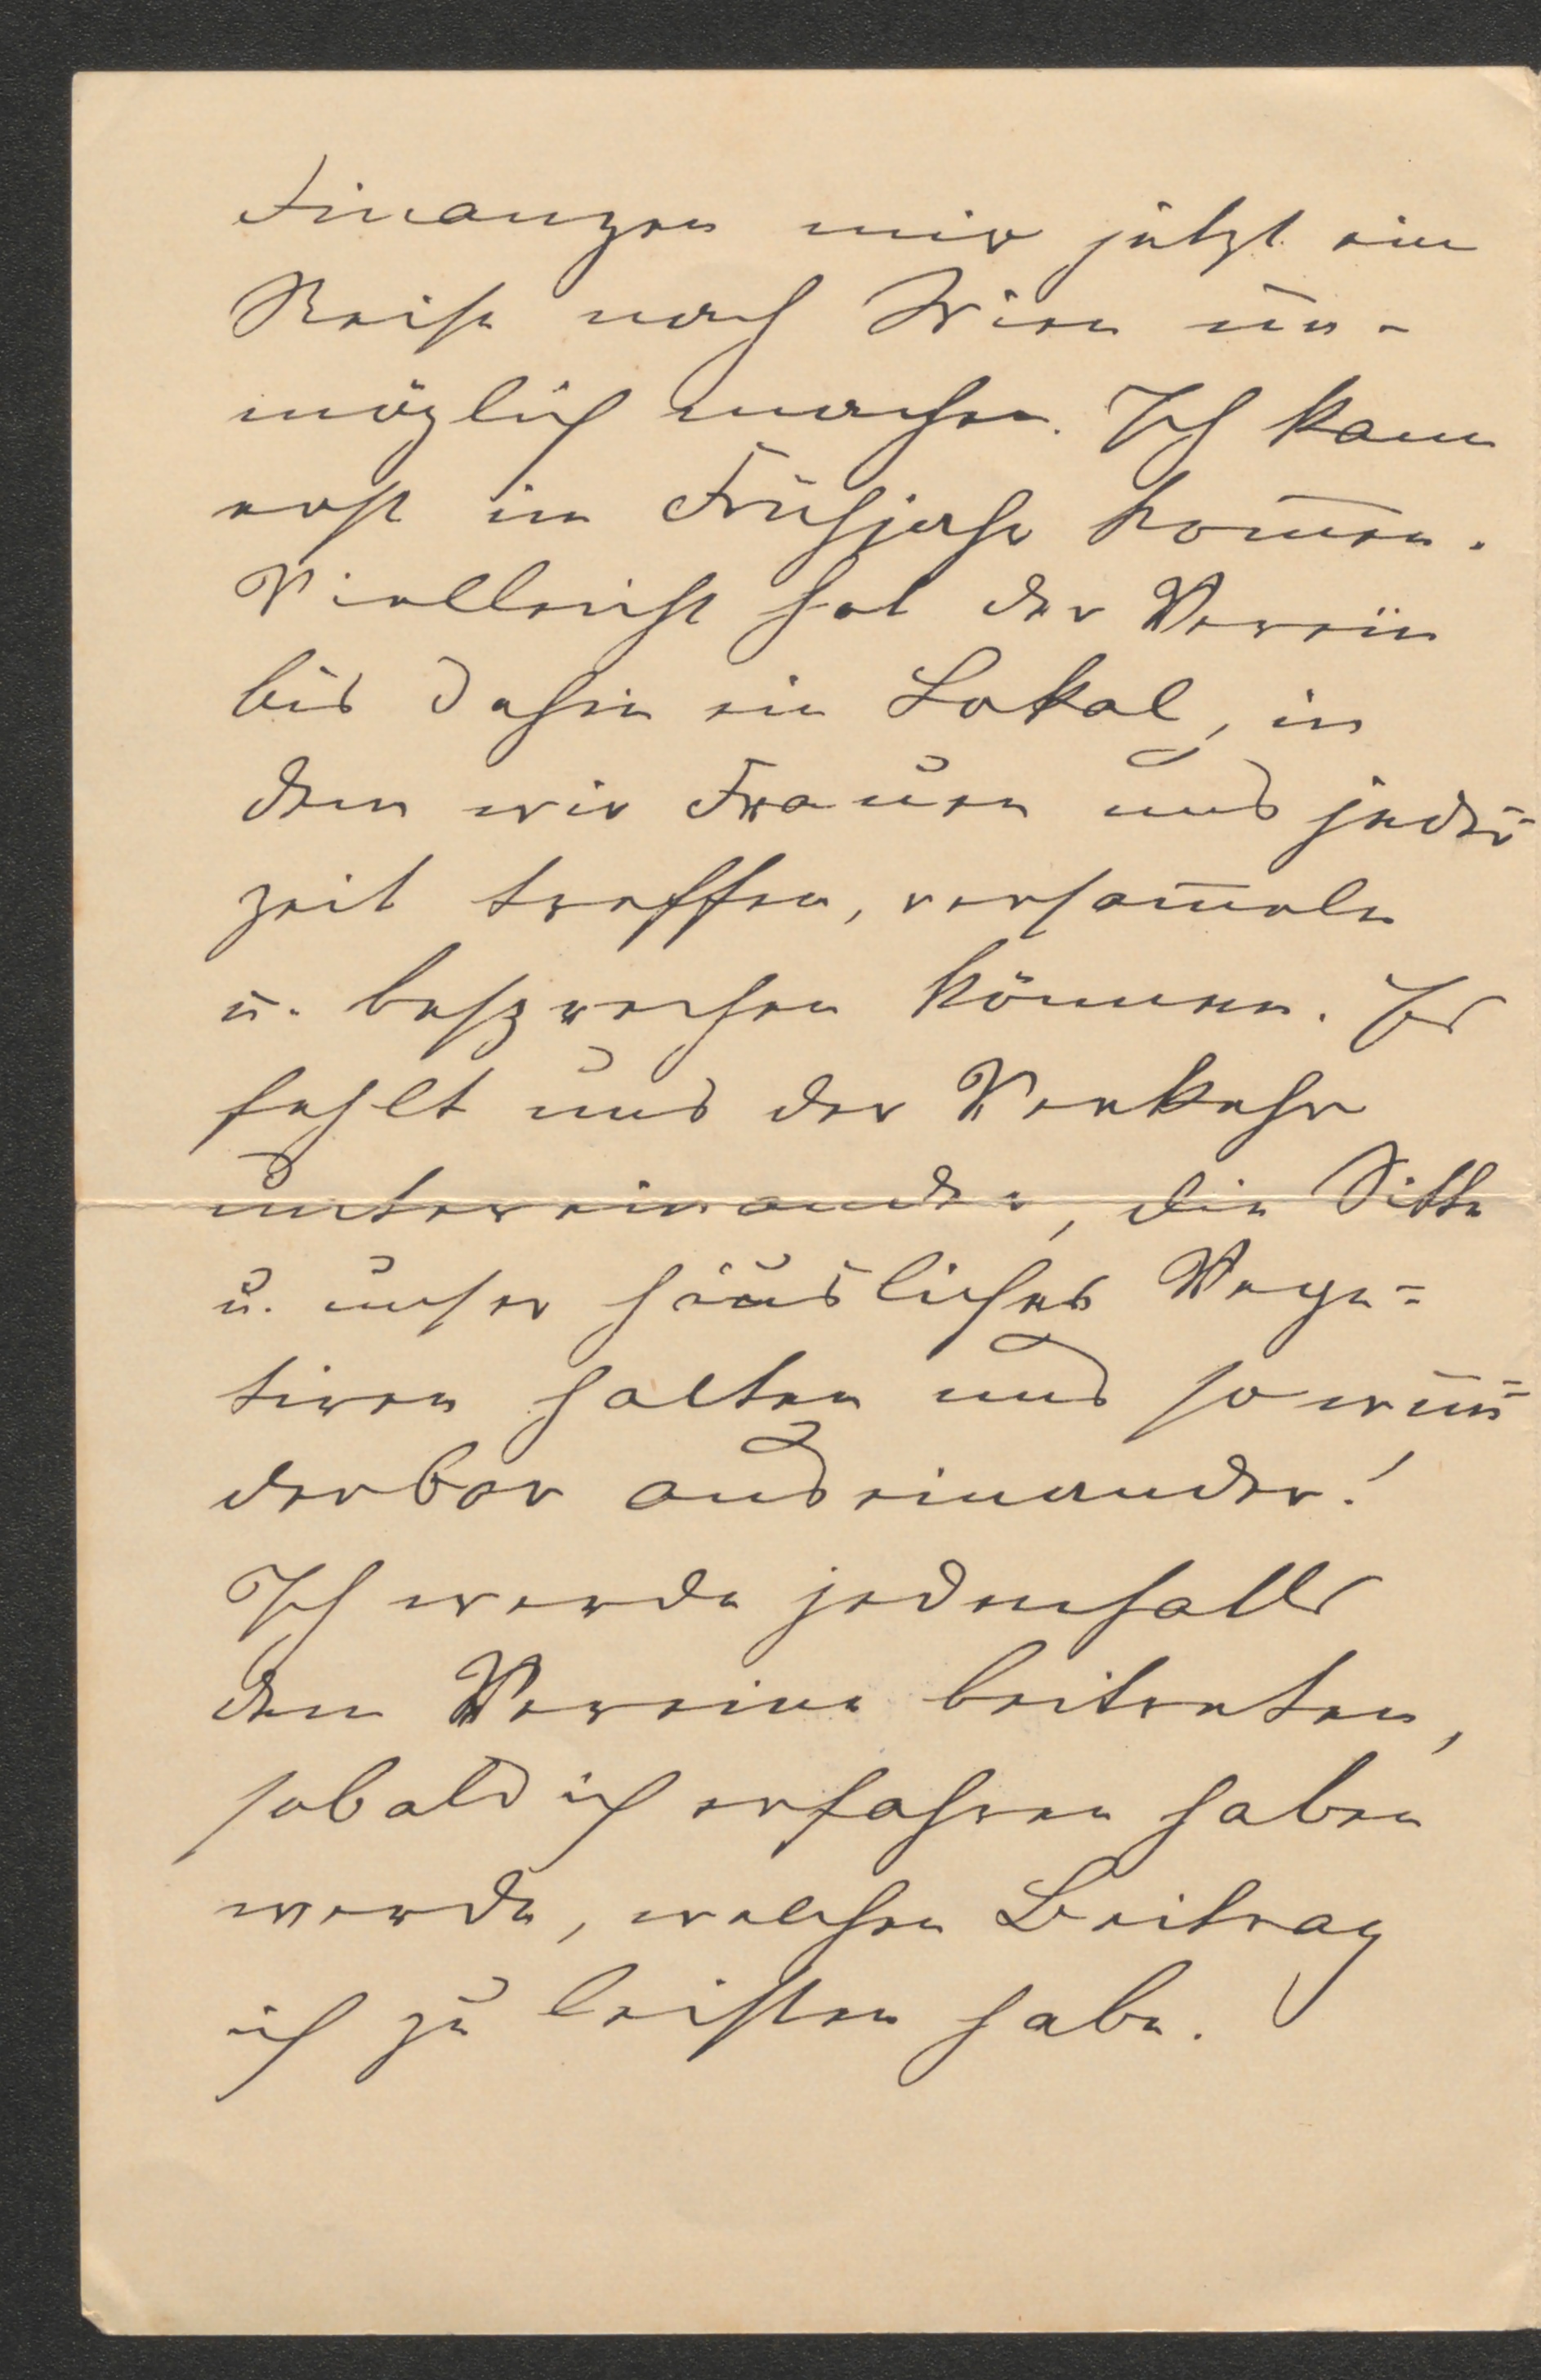 Finanzen mir jetzt eine
Reise nach Wien un-
möglich machen. Ich kann
erst im Frühjahr kom̅en.
Vielleicht hat der Verein
bis dahin ein Lokal, in
dem wir Frauen uns jeder=
zeit treffen, versam̅eln
u. besprechen können. Es
fehlt uns der Verkehr
untereinander, die Sitte
u. unser häusliches Vege=
tiren halten uns so wun=
derbar auseinander!
Ich werde jedenfalls
dem Vereine beitreten,
sobald ich erfahren haben
werde, welchen Beitrag
ich zu leisten habe.